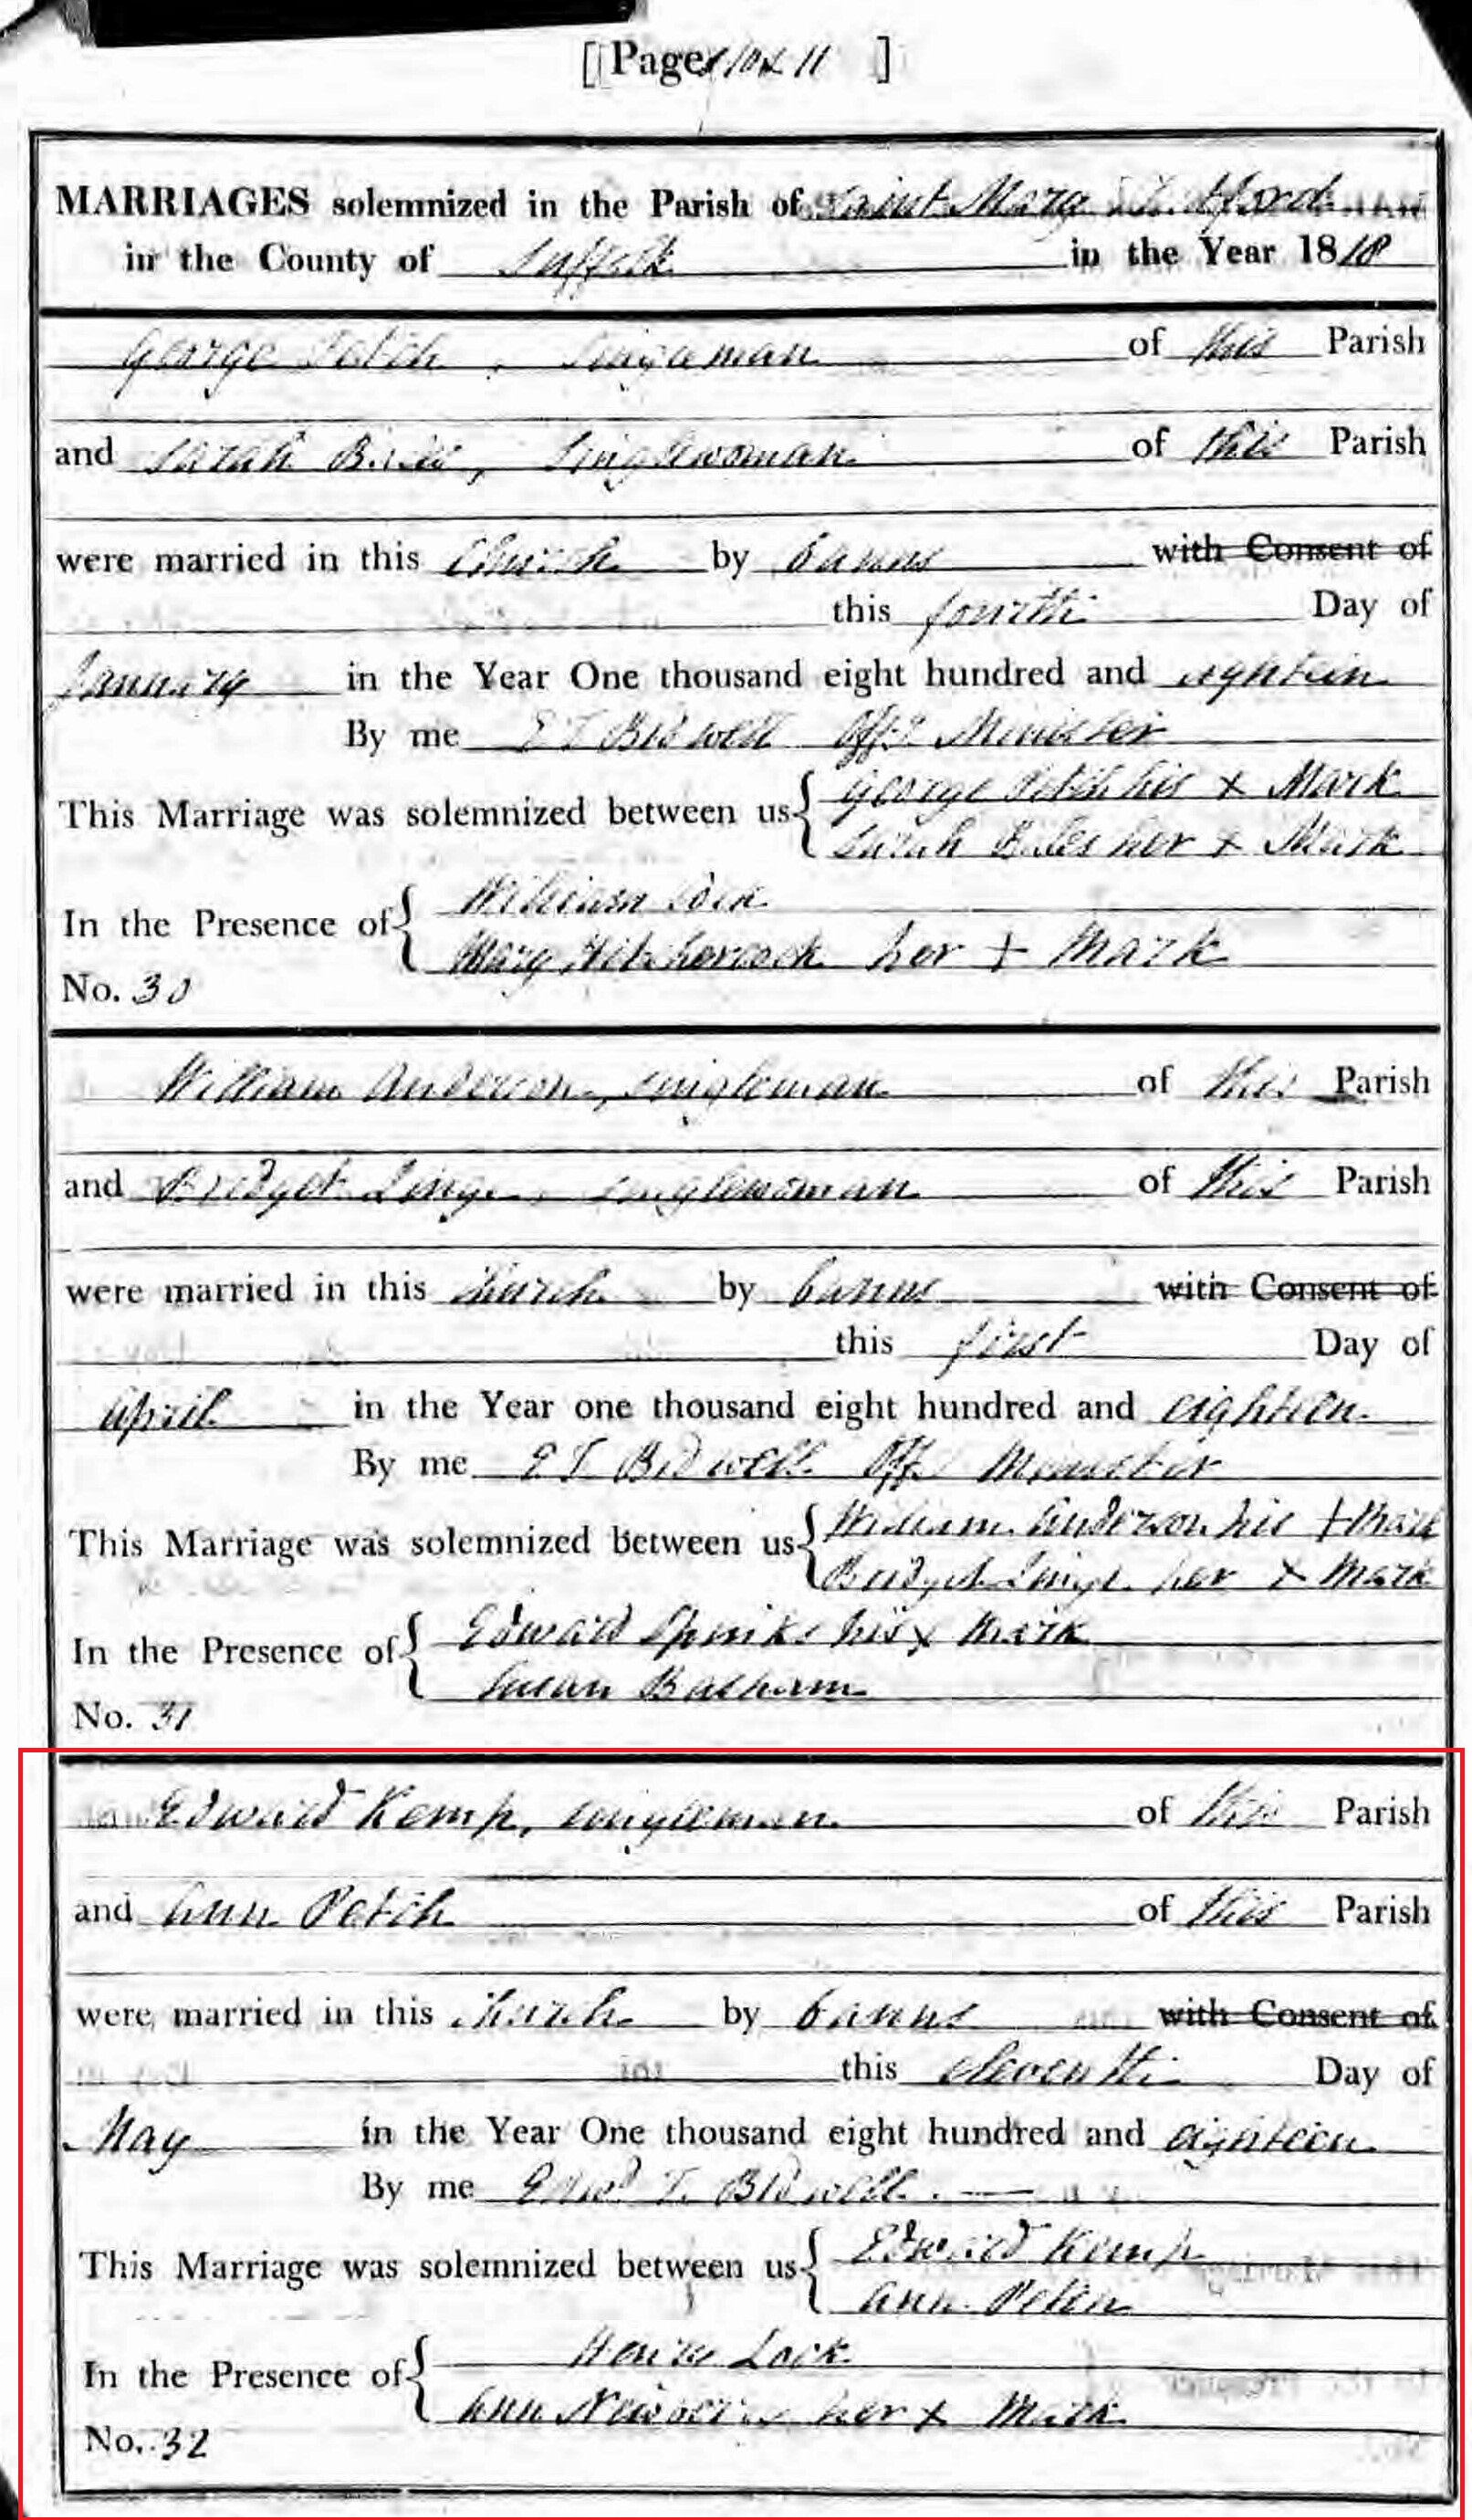 [ Page 10 & 11 ]
MARRIAGES solemnized in the Parish of Saint Mary
in the County of Suffolk in the Year 1818
George Petch, Singleman of this Parish
and Sarah of this Parish
Singlewoman
were married in this Church by banns with Consent of
this fourth Day of
January in the Year One thousand eight hundred and eighteen
By me E T Bidwell Offg Minister
This Marriage was solemnized between us { George Petch his x Mark
Sarah Bales her x Mark
In the Presence of { William
Mary her + Mark
No. 30
William Anderson, singleman of this Parish
and Bridget singlewoman of this Parish
were married in this Church by banns with Consent of
this first Day of
April in the Year one thousand eight hundred and eighteen.
By me E T Bidwell Off Minister
This Marriage was solemnized between us { William Anderson his + Mark
Bridget her x Mark
In the Presence of { Edward Spinks his x Mark
Susan Balham
No. 31
Edward Kemp, singleman of this Parish
and Ann Petch of this Parish
were married in this Church by banns with Consent of
this eleventh Day of
May in the Year One thousand eight hundred and eighteen
By me Edwd T. Bidwell.
This Marriage was solemnized between us { Edward Kemp
Ann Petch
In the Presence of { Lock
Ann her x Mark
No. 32